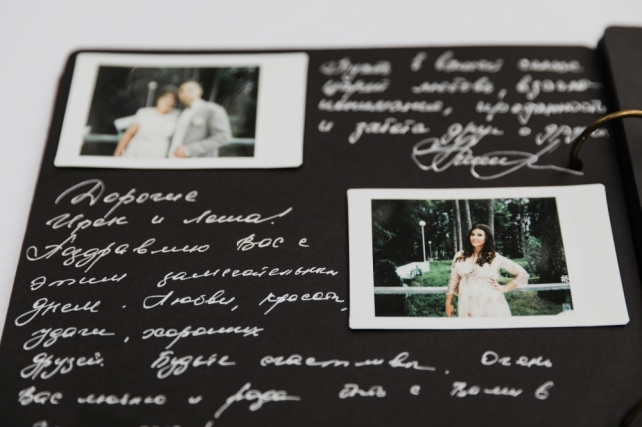 Пусть в вашей семье
царит любовь, взаимо-
понимание, преданность
и забота друг о друге.
Дорогие
Ирек и Леша!
Поздравляю Вас с
этим замечательным
днем. Любви, красоты,
удачи, хороших
друзей. Будьте счастливы. Очень
Вас люблю и рада быть с Вами в